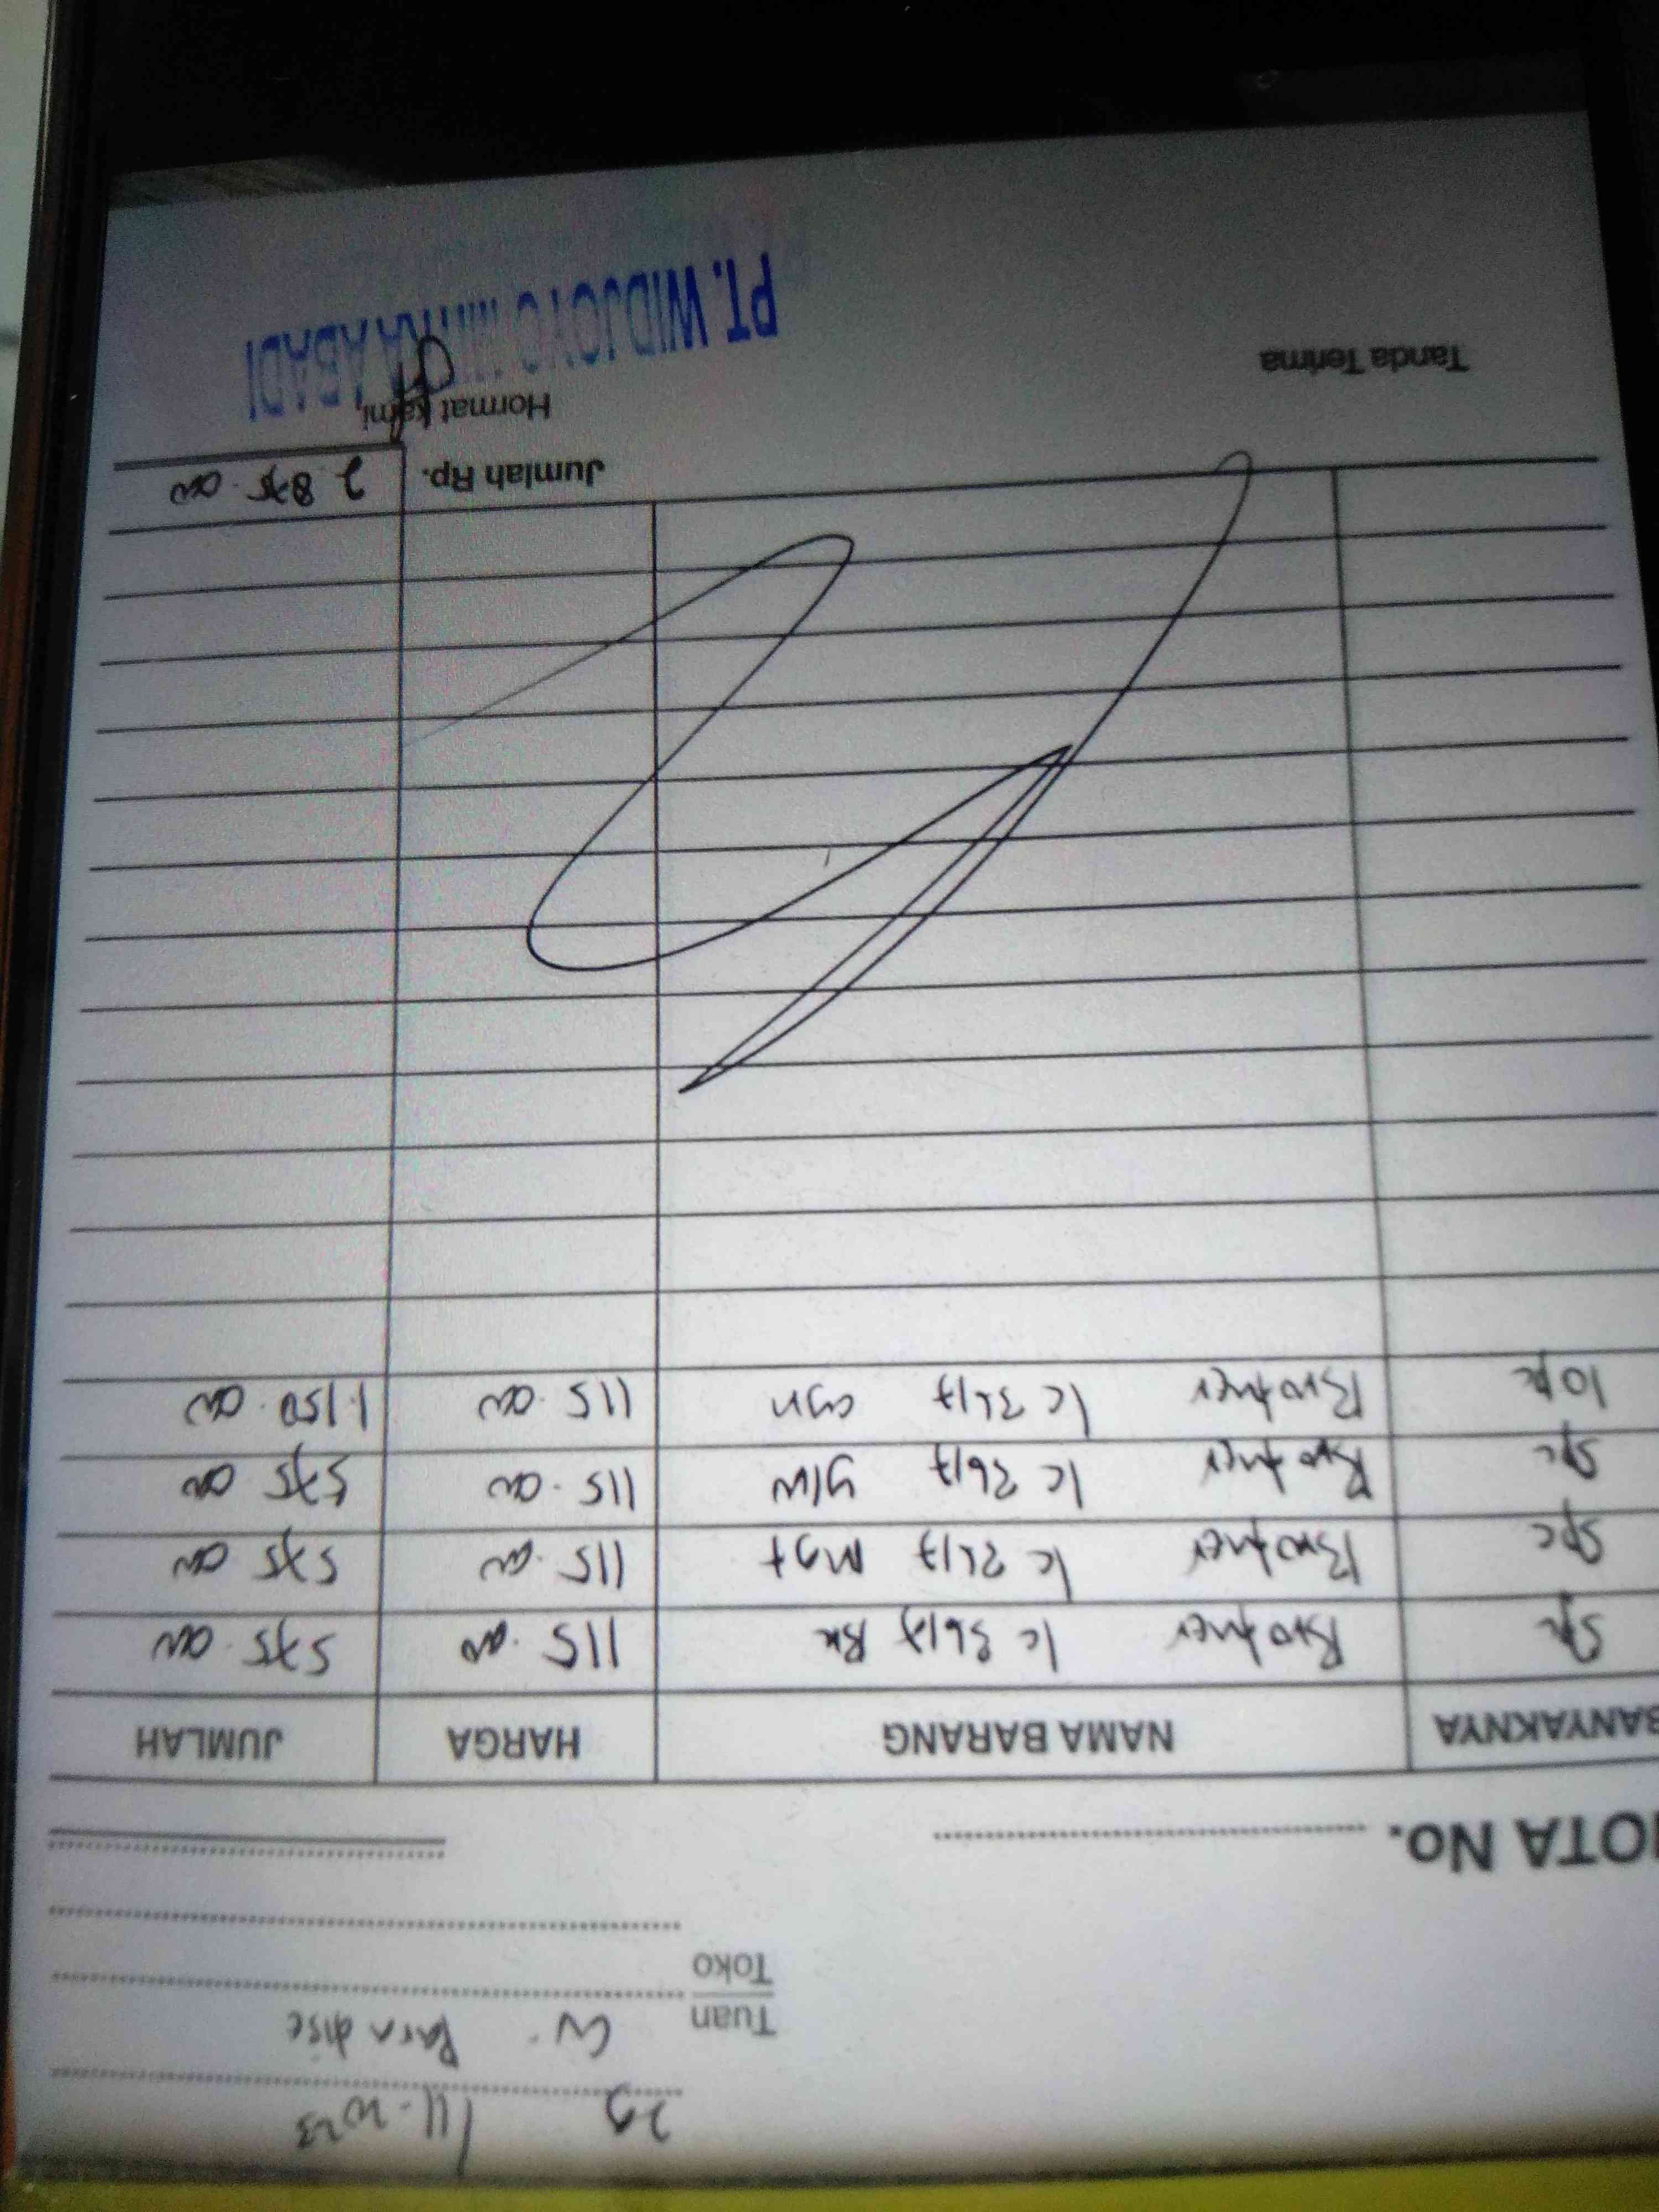 29/11-2023
Tuan CV. Paradise
Toko
NOTA No.
BANYAKNYA NAMA BARANG HARGA JUMLAH
5pc Brother lc 3617 BK 115.000 575.000
5pc Brother lc 3617 Mgt 115.000 575.000
5pc Brother lc 3617 ylw 115.000 575.000
10pc Brother lc 3617 cyn 115.000 1.150.000
Jumlah Rp. 2.875.000
Tanda Terima Hormat kami,
PT. WIDJOYO MITRA ABADI